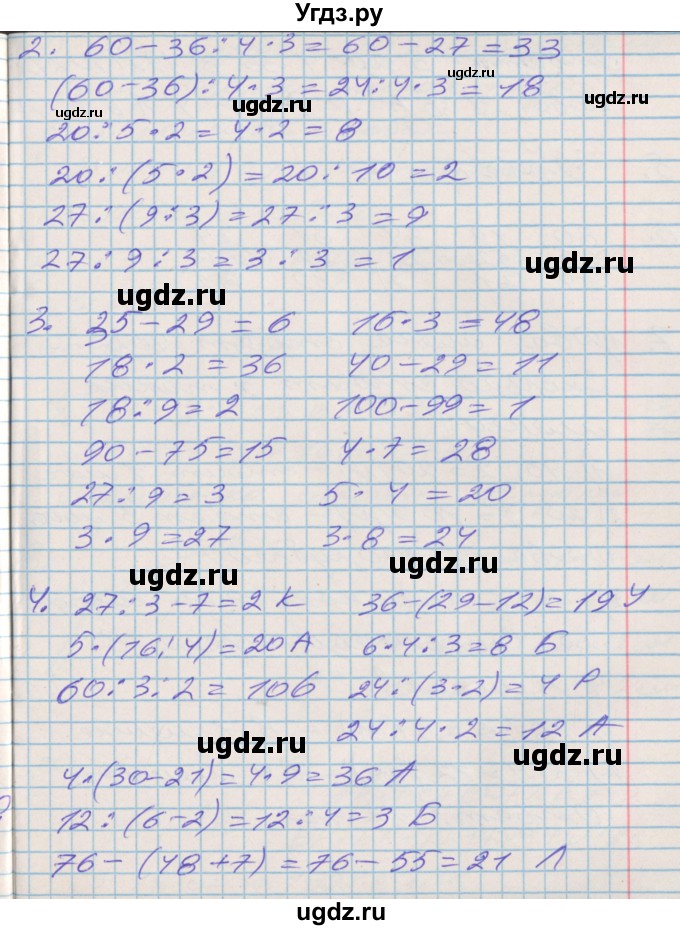 Угдз.ру
2. 60-36:4·3=60-27=33
(60-36):4·3=24:4·3=18
20:5·2=4·2=8
20:(5·2)=20:10=2
27:(9:3)=27:3=9
27:9:3=3:3=1
3. 35-29=6 16·3=48
18·2=36 40-29=11
18:9=2 100-99=1
90-75=15 4·7=28
27:9=3 5·4=20
3·9=27 3·8=24
4. 27:3-7=2 К 36-(29-12)=19 У
5·(16:4)=20 А 6·4:3=8 Б
60:3:2=10 б 24:(3·2)=4 Р
24:4·2=12 А
4·(30-21)=4·9=36 А
12:(6-2)=12:4=3 Б
76-(48+7)=76-55=21 Л
ugdz.ru
ugdz.ru
ugdz.ru
ugdz.ru
ugdz.ru
ugdz.ru
ugdz.ru
ugdz.ru
ugdz.ru
ugdz.ru
ugdz.ru
ugdz.ru